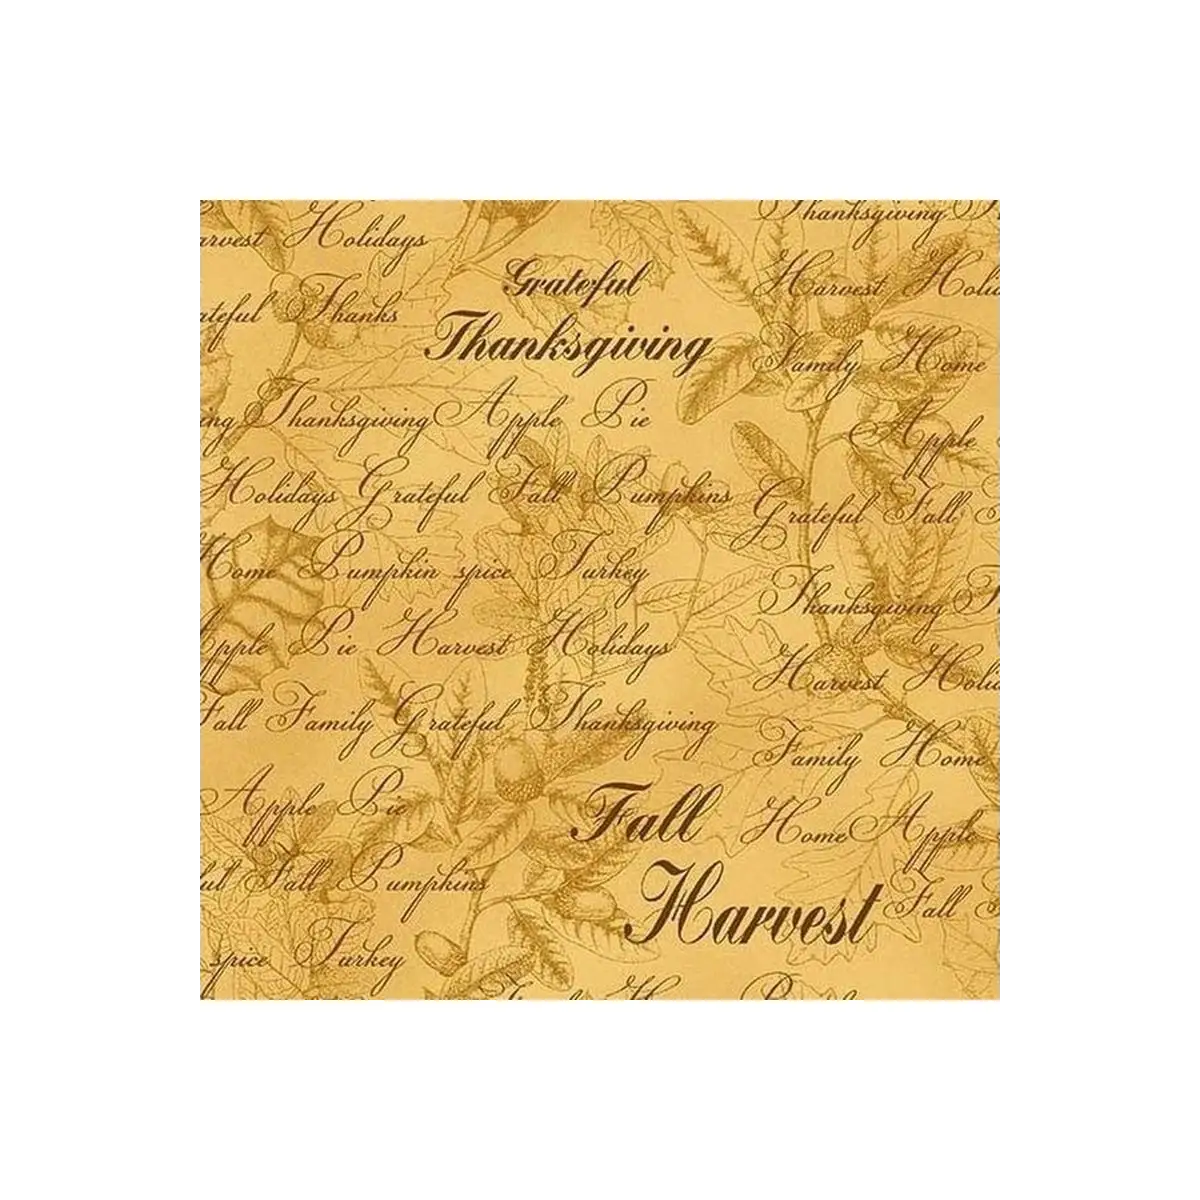 Holidays
Thanks
Grateful
Thanksgiving
Thanksgiving Apple Pie
Holidays Grateful Fall Pumpkins
Home Pumpkin spice Turkey
Pie Harvest Holidays
Fall Family Grateful Thanksgiving
Apple Pie
Fall Pumpkins
spice Turkey
Fall
Harvest
Thanksgiving
Harvest
Family Home
Apple
Grateful Fall
Thanksgiving
Harvest
Family Home
Home Apple
Fall